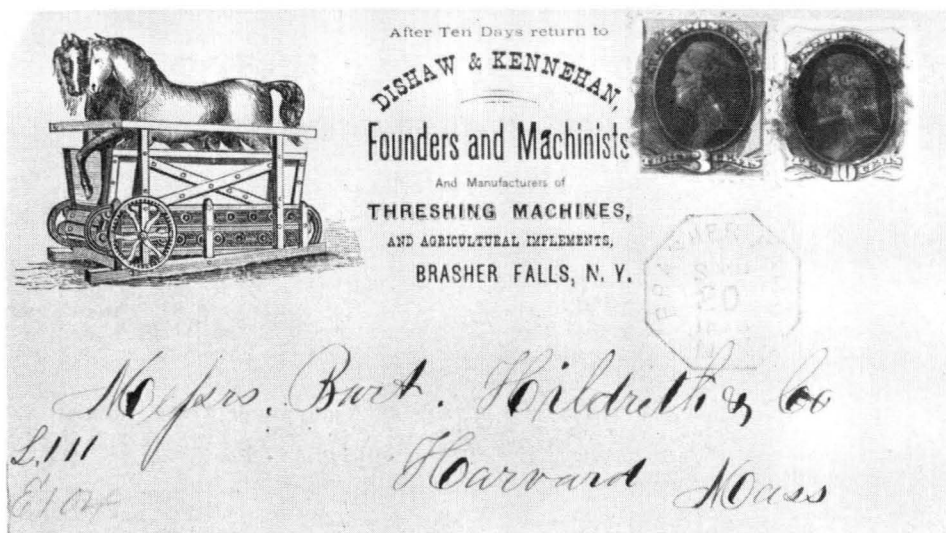 After Ten Days return to
DISHAW & KENNEHAN,
Founders and Machinists
And Manufacturers of
THRESHING MACHINES,
AND AGRICULTURAL IMPLEMENTS,
BRASHER FALLS, N. Y.
3
TEN 10 CENTS
Messrs. Burt. Hildreth & Co
Harvard Mass
L.111